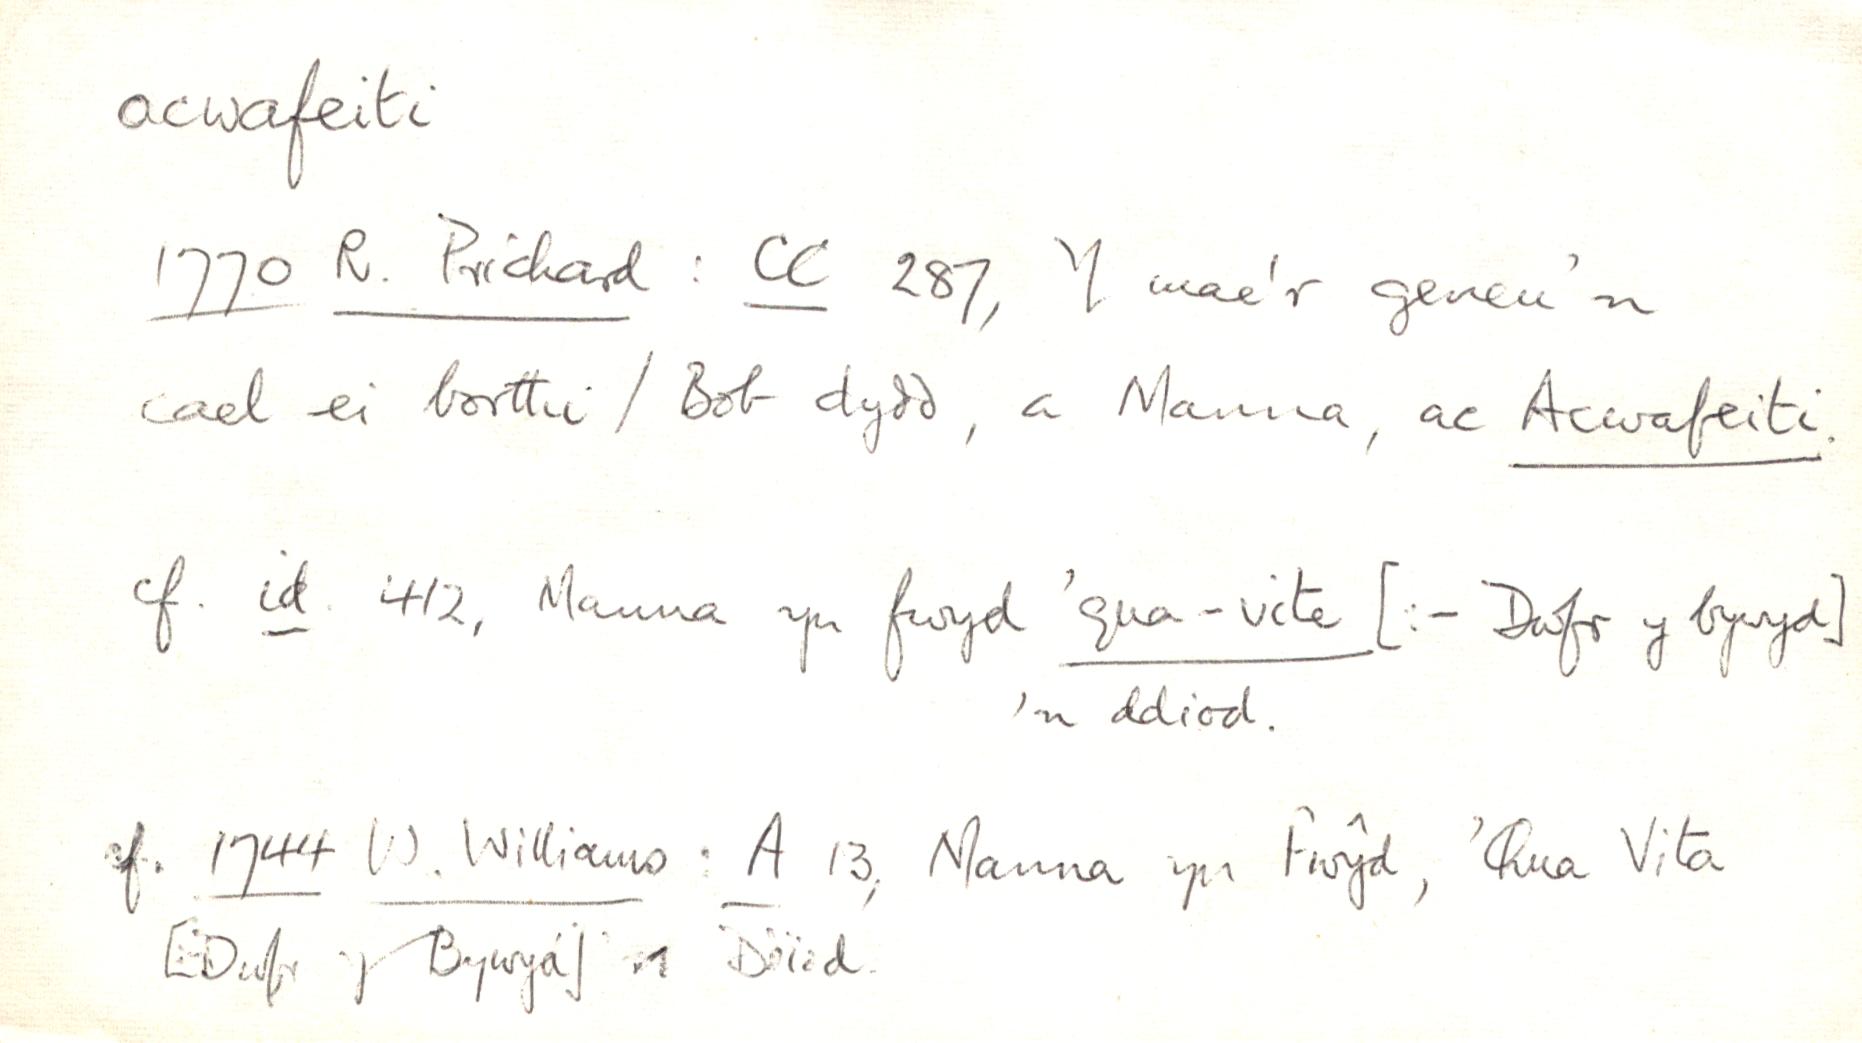 acwafeiti
1770 R. Prichard : CC 287, Y mae'r geneu'n
cael ei borthi / Bob dydd, a Manna, ac Acwafeiti.
cf. id. 412, Manna yn fwyd 'qua-vite [:- Dwfr y bywyd]
'n ddiod.
cf. 1744 W. Williams : A 13, Manna yn Fwŷd, 'Qua Vita
[:-Dwfr y Bywyd] 'n Ddiod.